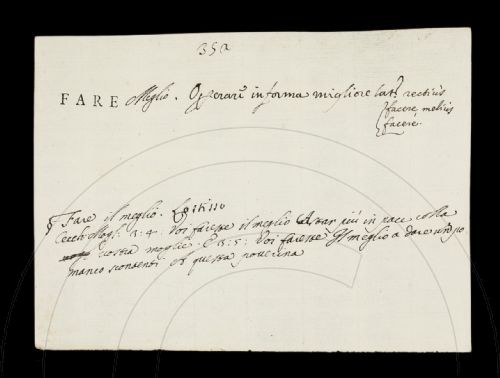 352
FARE Meglio. Operare in forma migliore lat. rectius
facere melius
facere.
§ Fare il meglio.
Cecch. Mogl. 3: 4. Voi fareste il meglio a star più in pace colla
vostra moglie. E 3: 5: Voi fareste il meglio a dare un po
manco scontenti a questa poverina